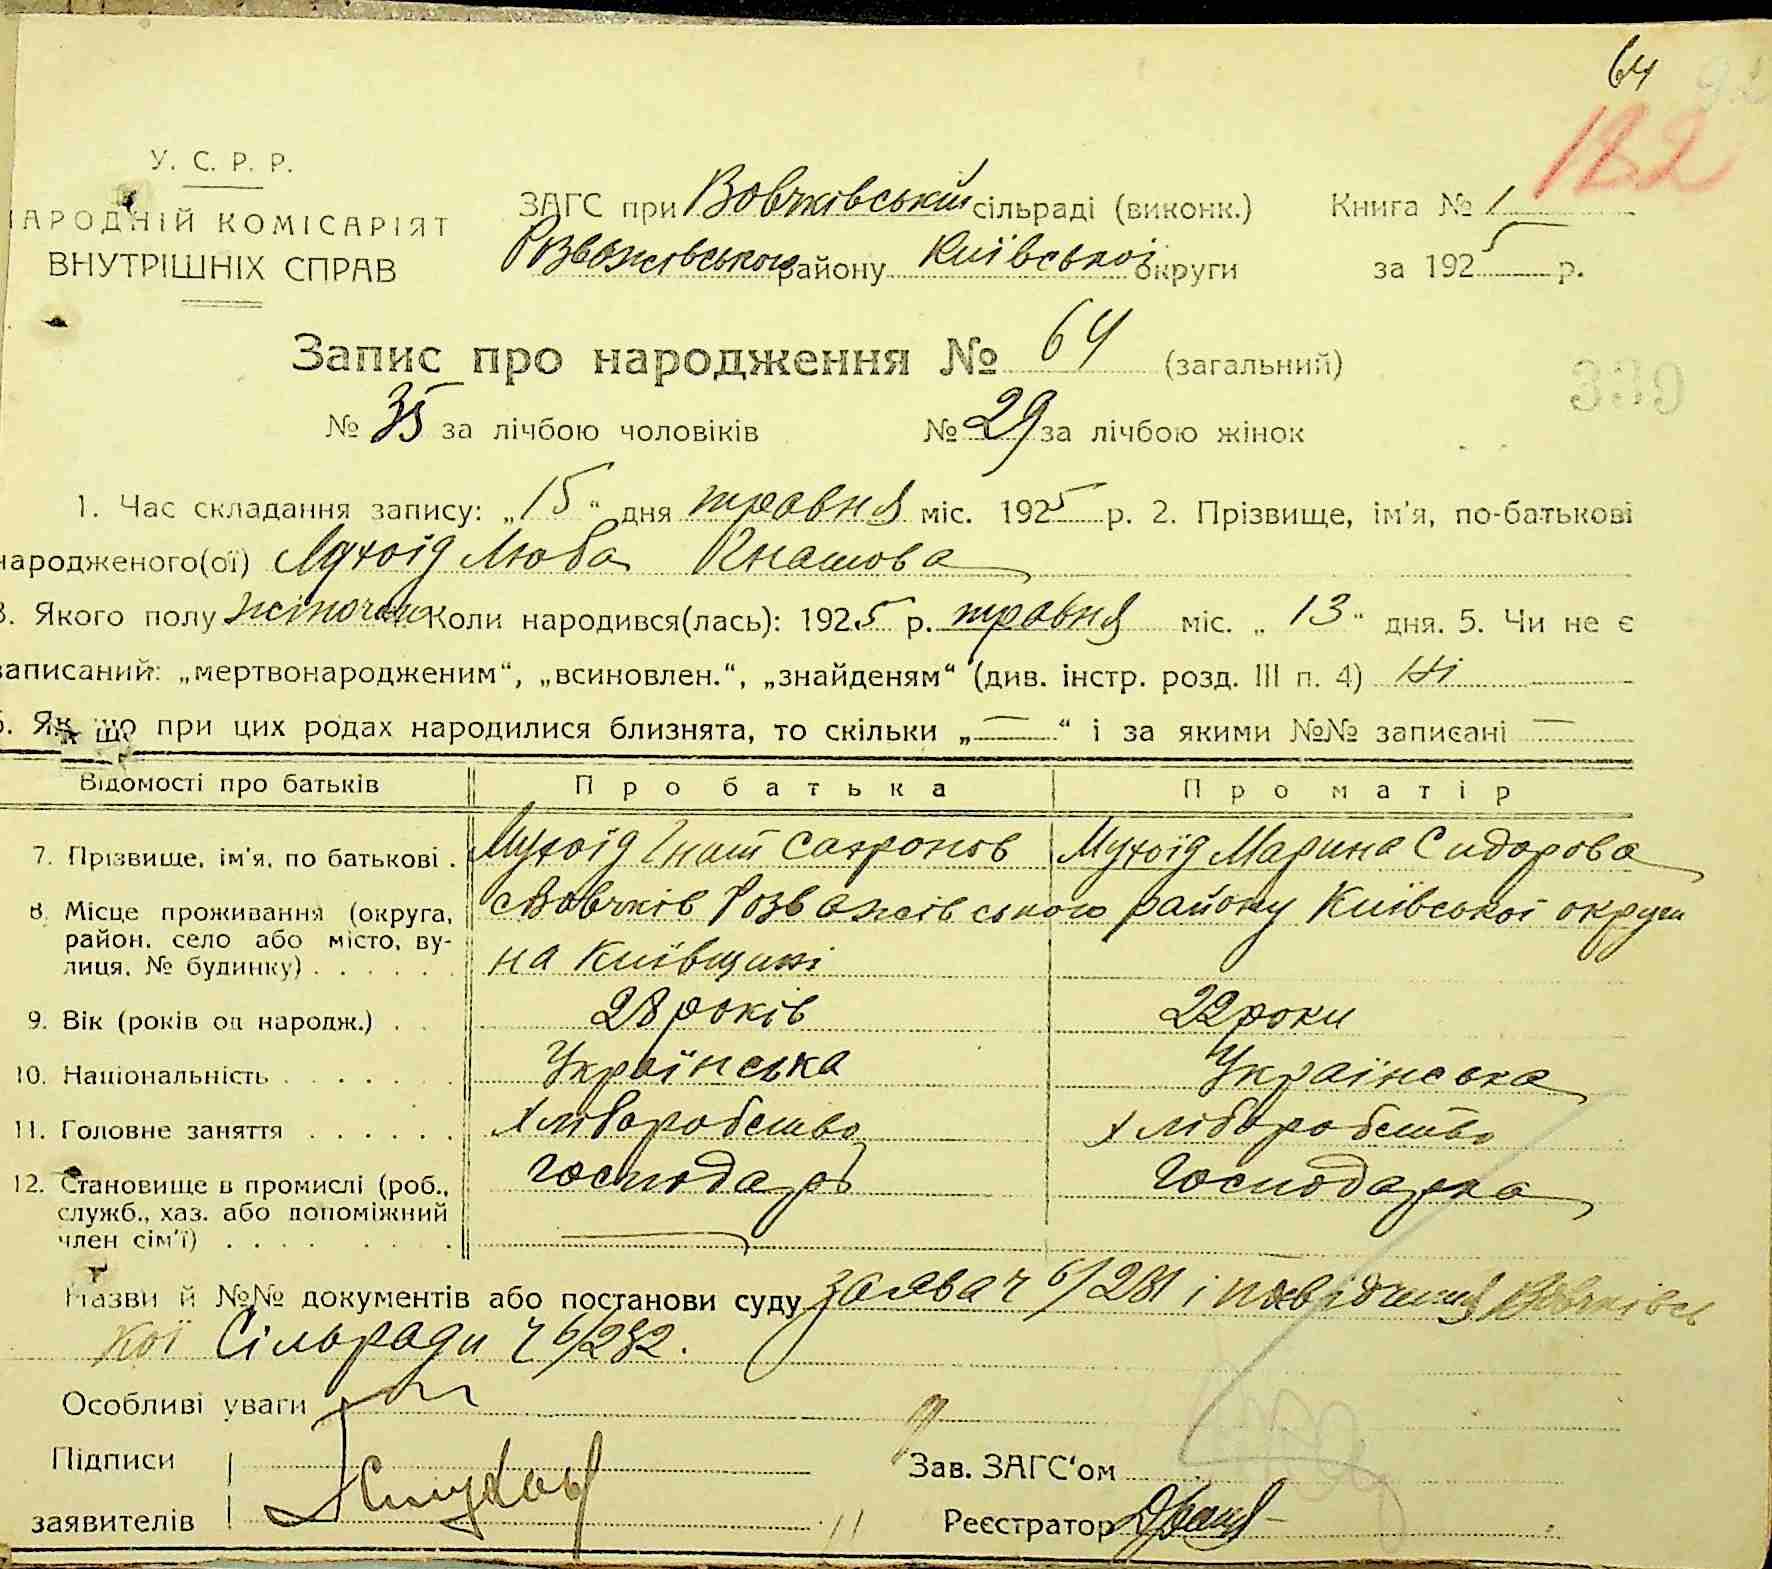 64
182
У. С. Р. Р.
НАРОДНІЙ КОМІСАРІЯТ
ВНУТРІШНІХ СПРАВ
ЗАГС при Вовчківській сільраді (виконк.) Книга № 1
Розважівського району Київської округи за 1925 р.
Запис про народження № 64 (загальний)
339
№ 35 за лічбою чоловіків № 29 за лічбою жінок
1. Час складання запису: „15“ дня травня міс. 1925 р. 2. Прізвище, ім'я, по-батькові
народженого(ої) Мухоїд Люба Гнатова
3. Якого полу жіночий Коли народився(лась): 1925 р. травня міс. „13“ дня. 5. Чи не є
записаний: „мертвонародженим“, „всиновлен.“, „знайденям“ (див. інстр. розд. III п. 4) Ні
6. Як що при цих родах народилися близнята, то скільки „—“ і за якими №№ записані —
Відомості про батьків Про батька Про матір
7. Прізвище, ім'я, по батькові . Мухоїд Гнат Сафронов Мухоїд Марина Сидорова
8. Місце проживання (округа, район, село або місто, вулиця, № будинку) с Вовчків Розважівського району Київської округи
на Київщині
9. Вік (років од народж.) . . 28 років 22 роки
10. Національність Українська Українська
11. Головне заняття хліборобство хліборобство
12. Становище в промислі (роб., служб., хаз. або допоміжний член сім'ї) господарь господарка
Назви й №№ документів або постанови суду заява ч 6/281 і повідомлення Вовчківсь
кої Сільради ч 6/282.
Особливі уваги
Підписи
заявителів
Зав. ЗАГС'ом
Реєстратор